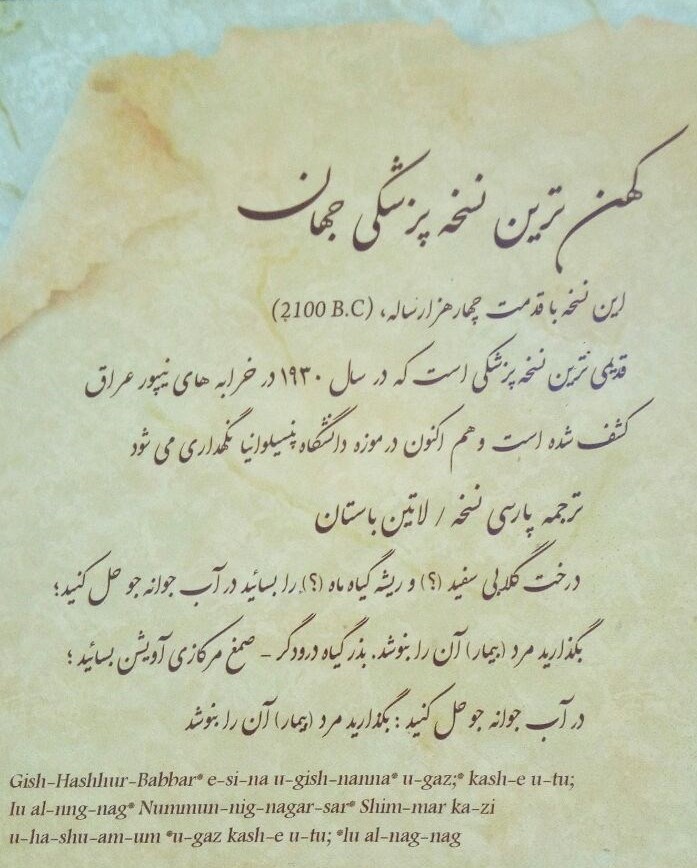 کهن ترین نسخه پزشکی جهان
این نسخه با قدمت چهار هزار ساله، (2100 B.C)
قدیمی ترین نسخه پزشکی است که در سال ۱۹۳۰ در خرابه های نیپور عراق
کشف شده است و هم اکنون در موزه دانشگاه پنسیلوانیا نگهداری می شود
ترجمه پارسی نسخه / لاتین باستان
درخت گلابی سفید (؟) و ریشه گیاه ماه (؟) را بسائید در آب جوانه جو حل کنید؛
بگذارید مرد (بیمار) آن را بنوشد. بذر گیاه درودگر - صمغ مرکازی آویشن بسائید ؛
در آب جوانه جو حل کنید : بگذارید مرد (بیمار) آن را بنوشد
Gish-Hashhur-Babbar* e-si-na u-gish-nanna* u-gaz;* kash-e u-tu;
lu al-nng-nag* Nummun-nig-nagar-sar* Shim-mar ka-zi
u-ha-shu-am-um *u-gaz kash-e u-tu; *lu al-nag-nag